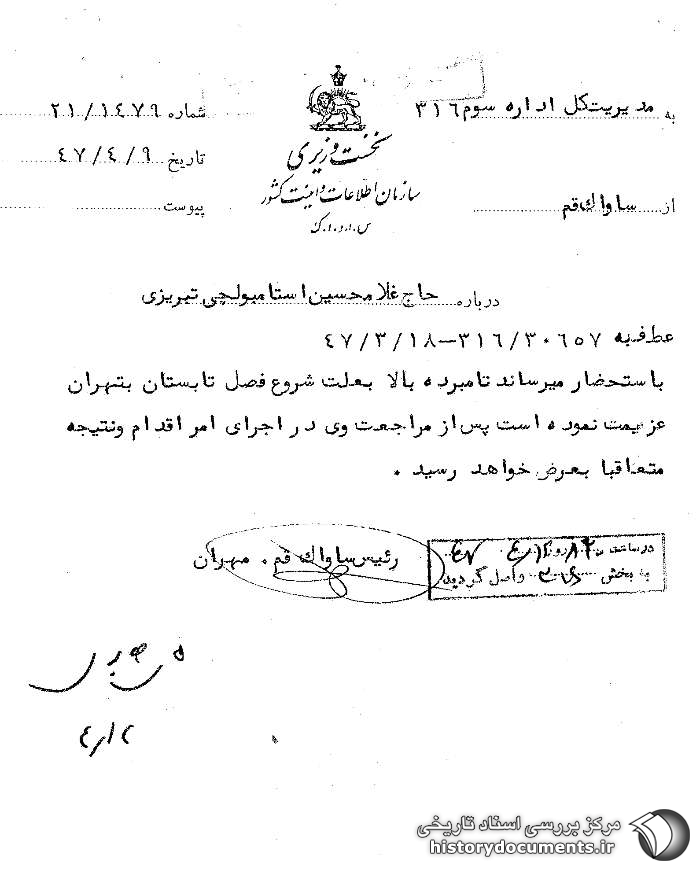 به مدیریت کل اداره سوم ۳۱۶
شماره ۲۱/۱٤۷۹
نخست وزیری
تاریخ ٤۷/٤/۹
سازمان اطلاعات و امنیت کشور
از ساواك قم
پیوست
س.ا.و.ا.ك
درباره حاج غلامحسین استامبولچی تبریزی
عطف به ۳۱۶/۳۰٦٥۷-٤۷/۳/۱۸
باستحضار میرساند نامبرده بالا بعلت شروع فصل تابستان بتهران
عزیمت نموده است پس از مراجعت وی در اجرای امر اقدام ونتیجه
متعاقبا بعرض خواهد رسید .
رئیس ساواك قم . مهران
در ساعت روز
به بخش واصل گردید
مرکز بررسی اسناد تاریخی
historydocuments.ir